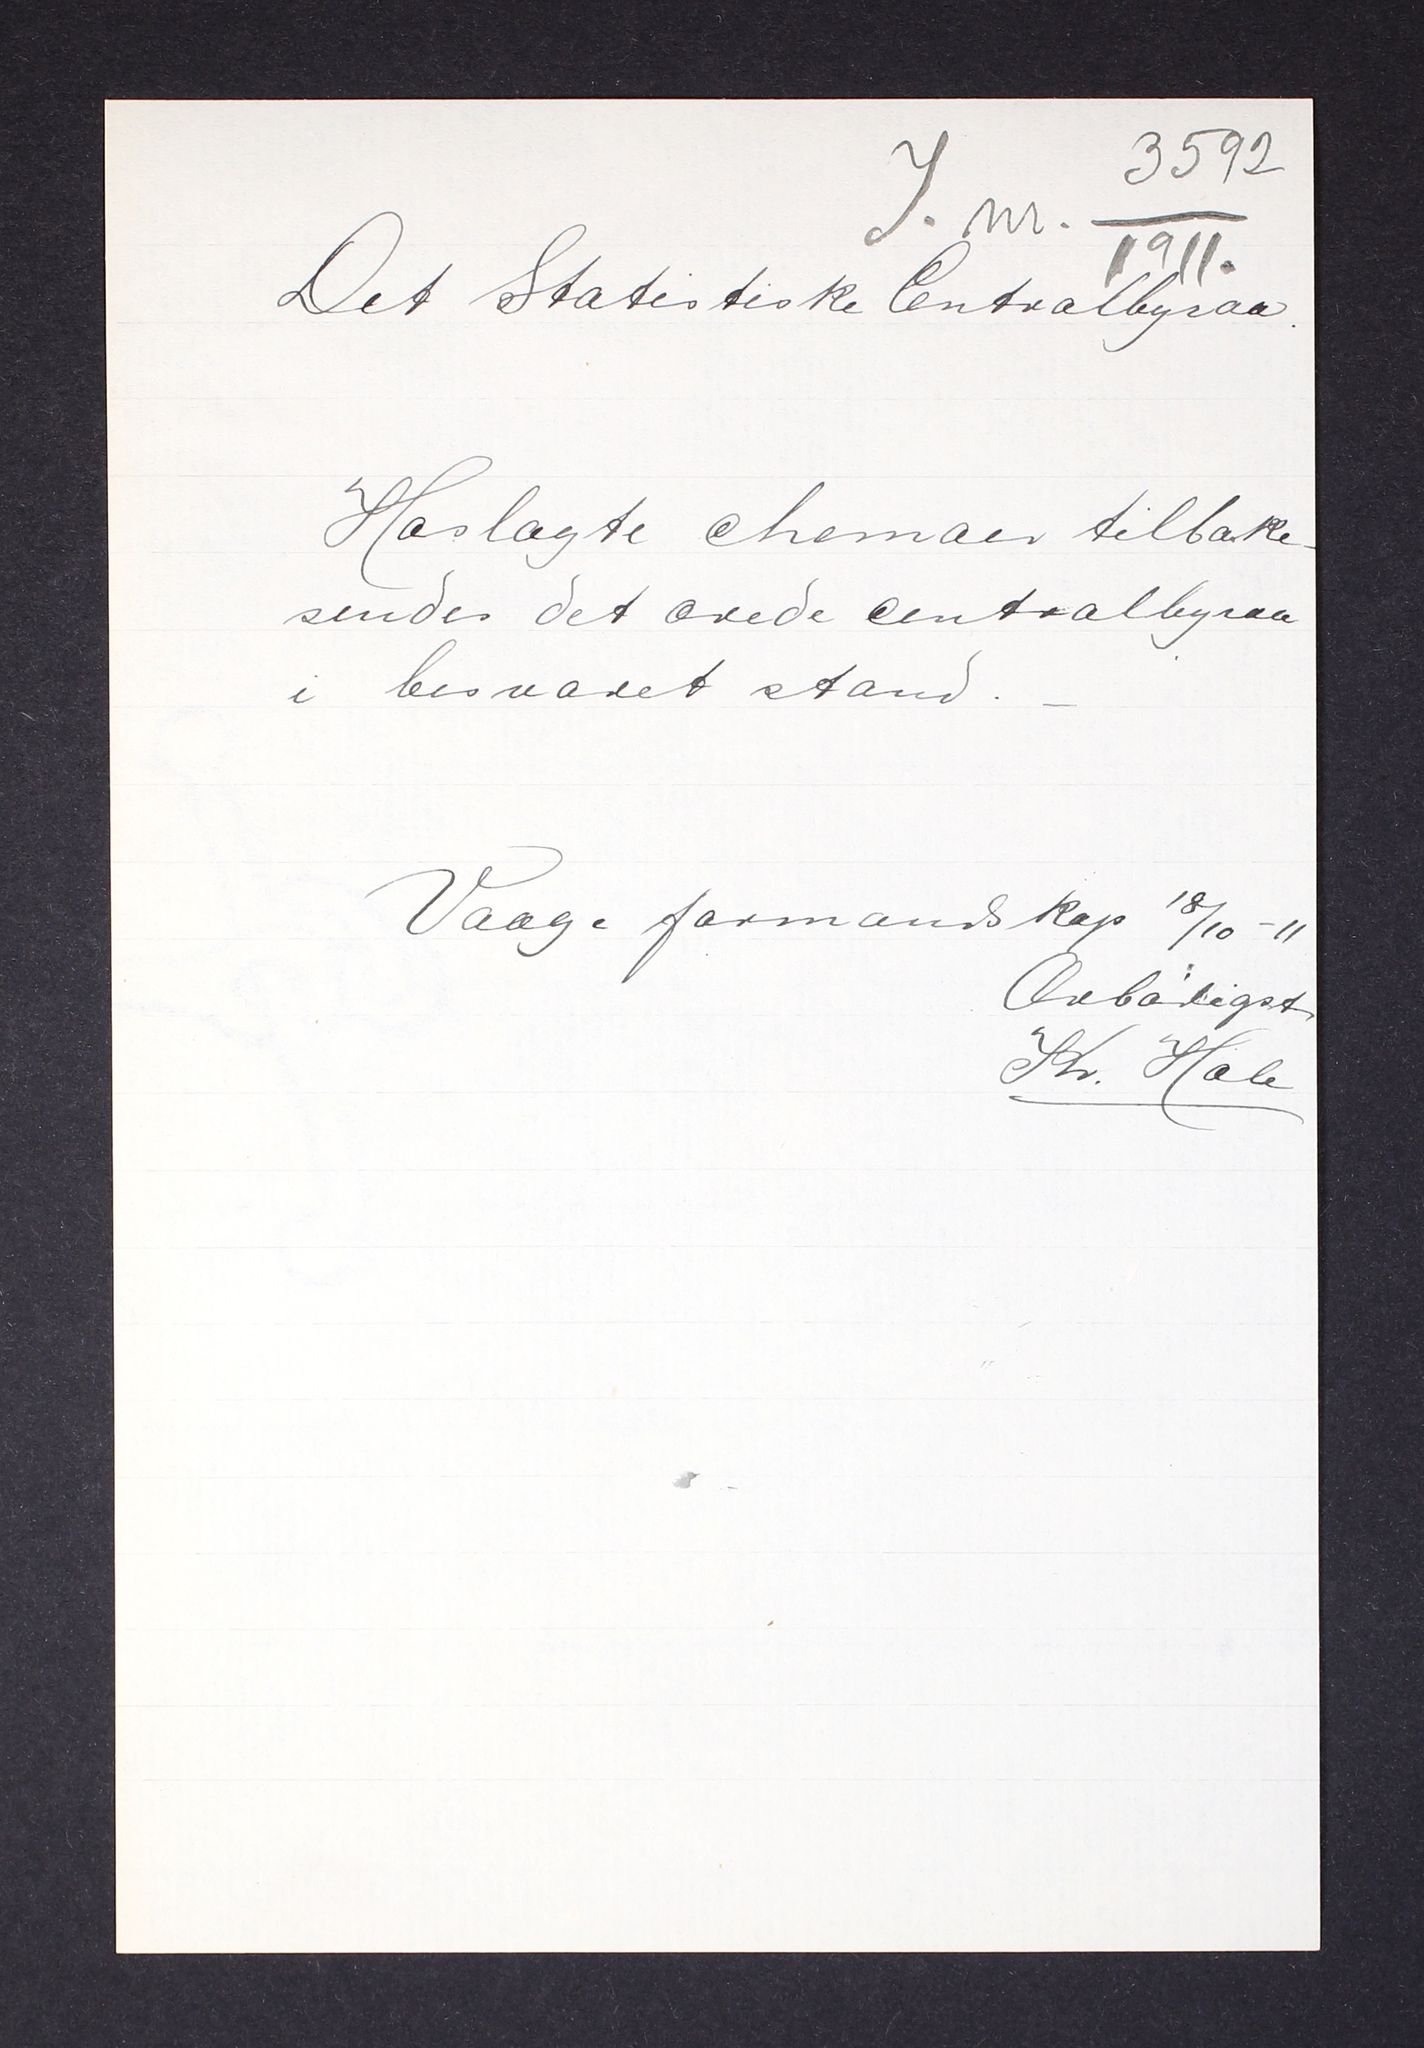 J. nr. 3592
1911.
Det Statistiske Centralbyraa.
Hoslagte chemaer tilbake-
sendes det ærede centralbyraa
i besvaret stand. –
Vaage formandskap 18/10 – 11
Ærbødigst
Kr. Hole